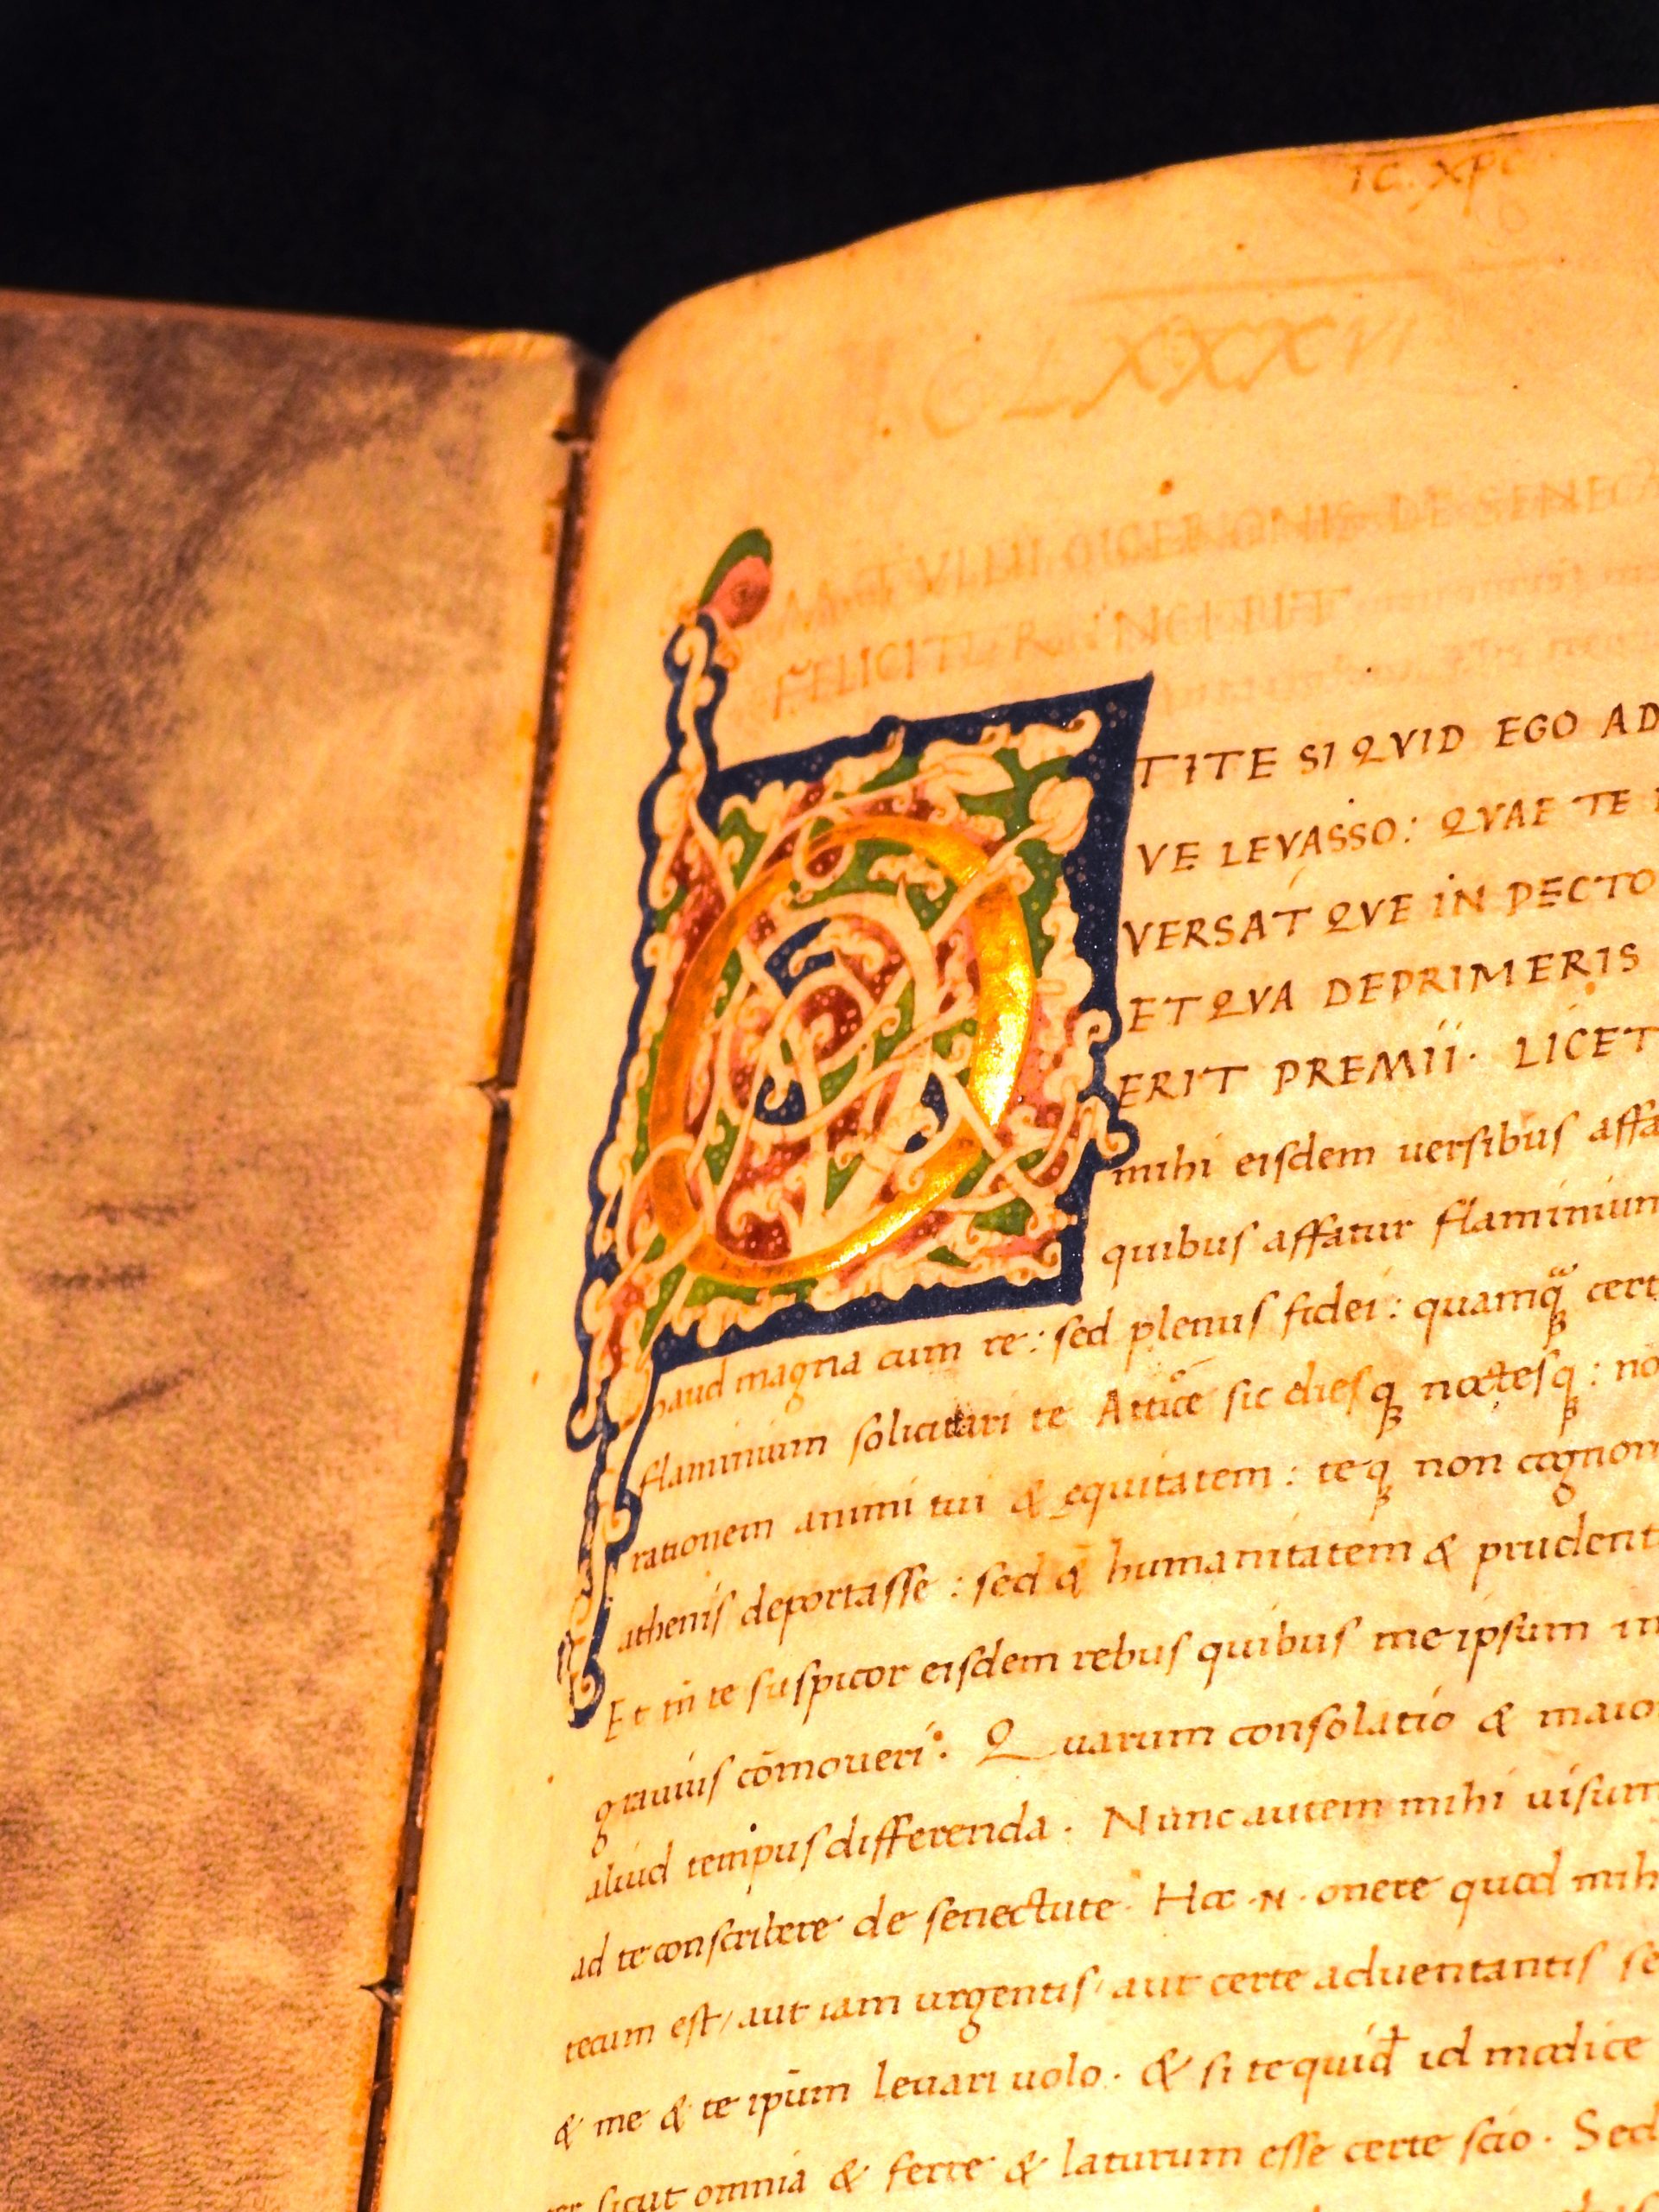 TC. XPC
CLXXXVI
DE SENEC
FELICIT INCIPIT
O TITE SI QVID EGO AD
VE LEVASSO: QVAE TE
VERSAT QVE IN PECTO
ET QVA DEPRIMERIS
ERIT PREMII. LICET
mihi eisdem versibus affa
quibus affatur flaminium
haud magna cum re: sed plenus fidei: quamq̃ cert
flaminium solicitari te Attice sic diesq; noctesq; : no
rationem animi tui & equitatem: teq; non cognom
athenis deportasse: sed & humanitatem & prudent
Et tñ te suspicor eisdem rebus quibus me ipsum in
grauius cõmoueri. Quarum consolatio & maio
aliud tempus differenda. Nunc autem mihi uisum
ad te conscribere de senectute. Hoc .N. onere quod mih
tecum est/ aut iam urgentis/ aut certe aduentantis se
& me & te ipũm leuari uolo. & si te quid̃ id modice
sicut omnia & ferre & laturum esse certe scio. Sed